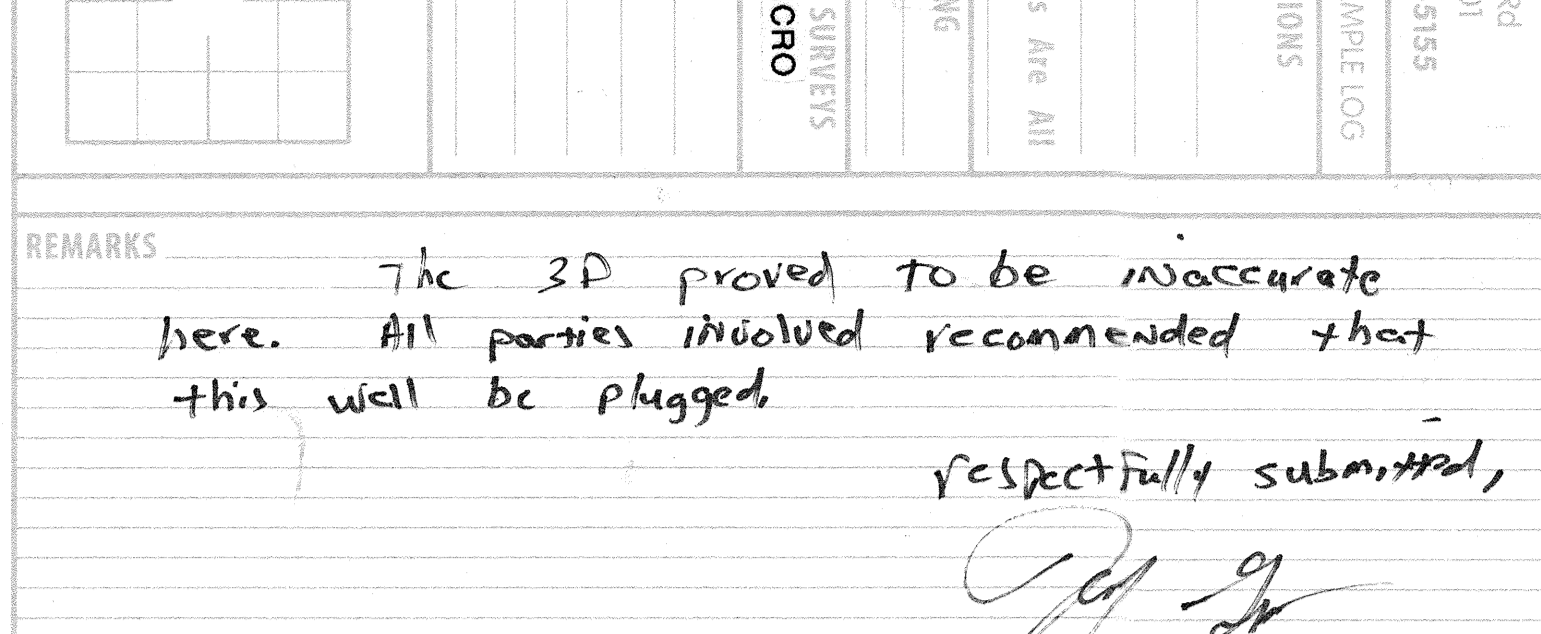 Rd
01
5155
MPLE LOG
IONS
s Are All
NG
SURVEYS
CRO
REMARKS
The 3D proved to be inaccurate
here. All parties involved recommended that
this well be plugged.
respectfully submitted,